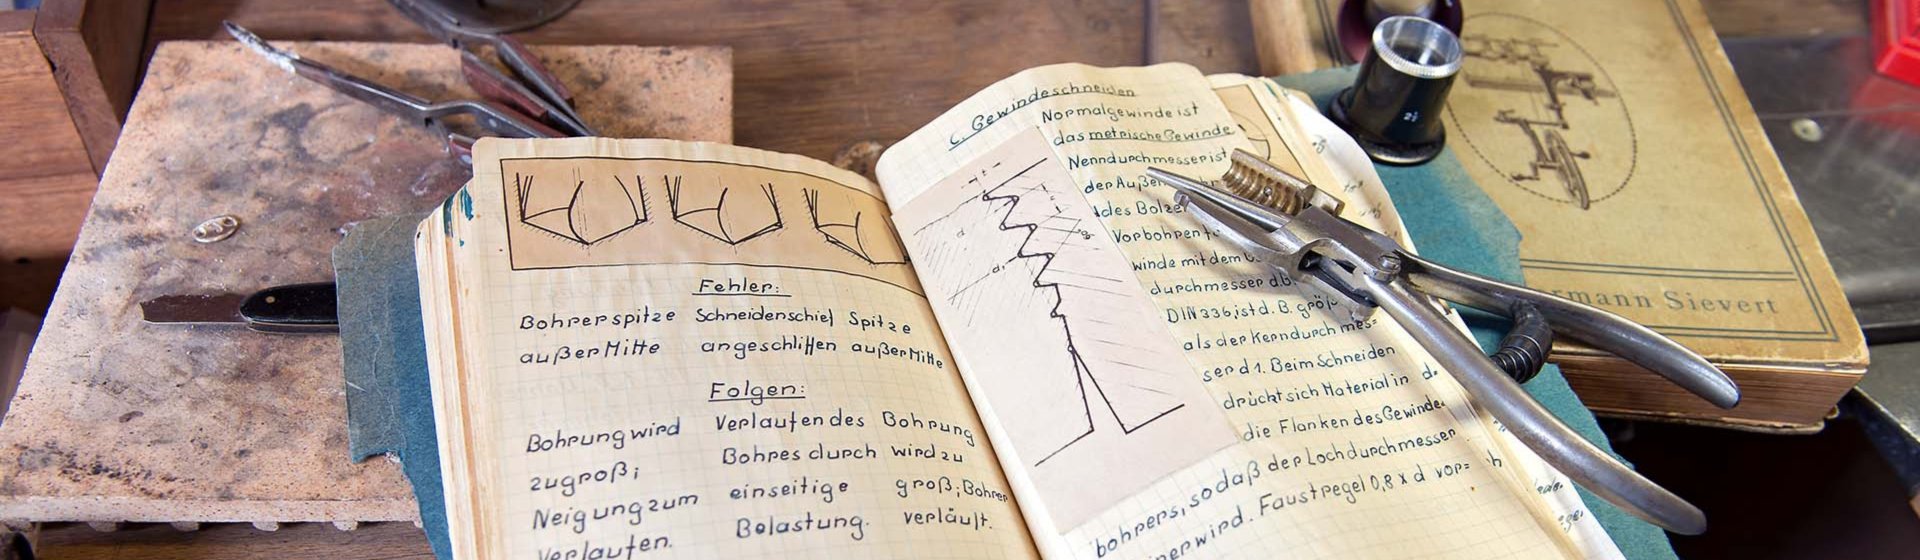 Fehler:
Bohrerspitze Schneidenschief Spitze
außer Mitte angeschliffen außer Mitte
Folgen:
Bohrung wird Verlaufen des Bohrung
zu groß; Bohres durch wird zu
Neigung zum einseitige groß; Bohrer
Verlaufen. Belastung. verläuft.
C. Gewindeschneiden
Normalgewinde ist
das metrische Gewinde
Nenndurchmesser ist
der
des
Vorbohren
winde mit dem
durchmesser d.B.
DIN 336 ist d. B.
als der Kerndurchmes=
ser d1. Beim Schneiden
drückt sich Material in d.
die Flanken des Gewinde
bohrers, so daß der Lochdurchmesser
wird. Faustregel 0,8 x d vor=
ermann Sievert